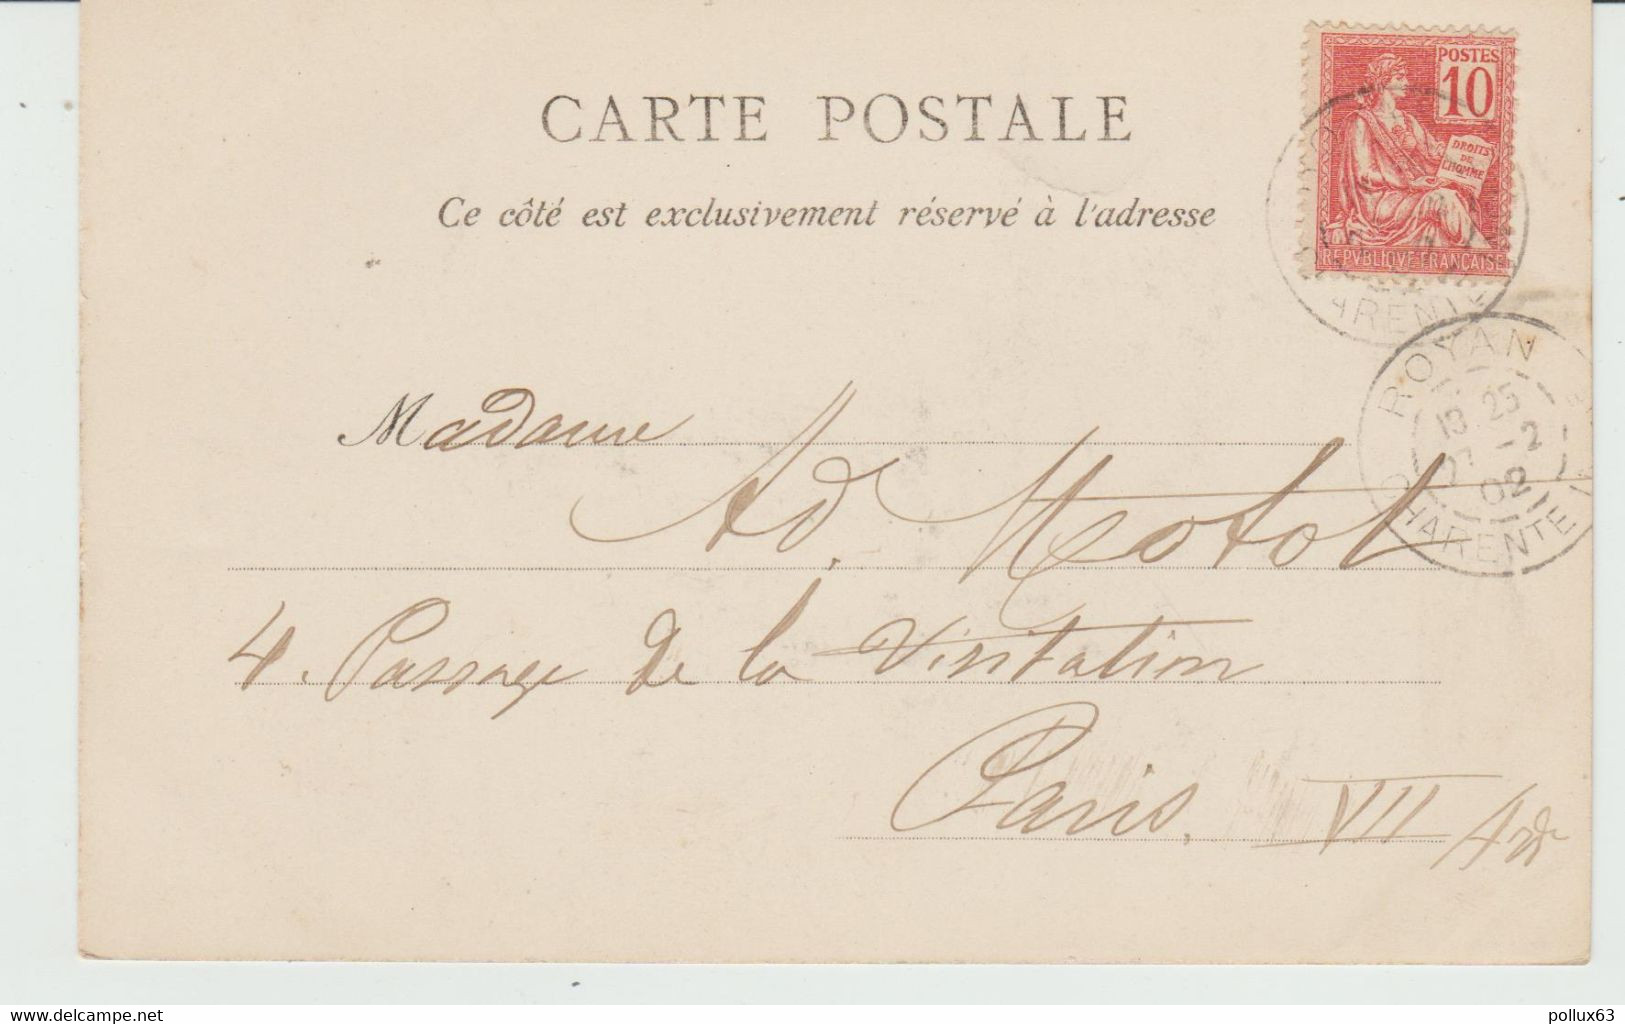 CARTE POSTALE
Ce côté est exclusivement réservé à l'adresse
POSTES
10
DROITS
DE
L'HOMME
REPVBLIQVE FRANÇAISE
ARENTE
ROYAN
13 25
27 -2
02
CHARENTE
Madame
Ad. Motot
4. Passage de la Visitation
Paris. VII Ardt
delcampe.net
pollux63